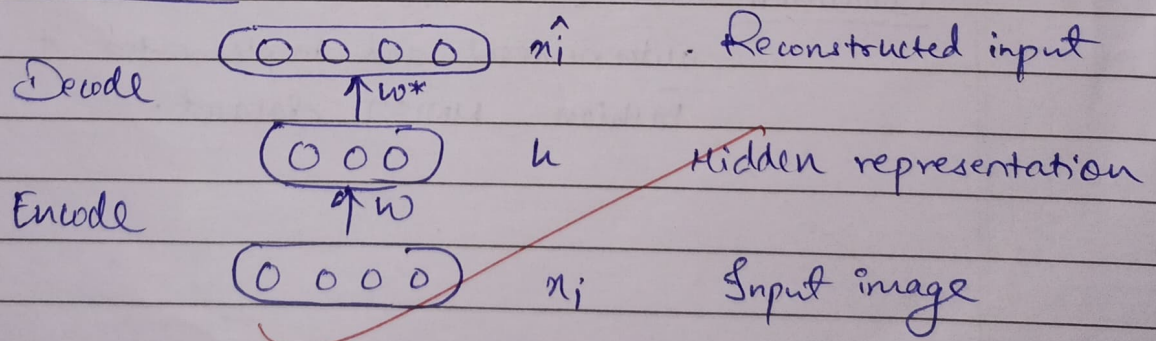 x̂i . Reconstructed input
Decode ↑w*
h Hidden representation
Encode ↑w
xi Input image